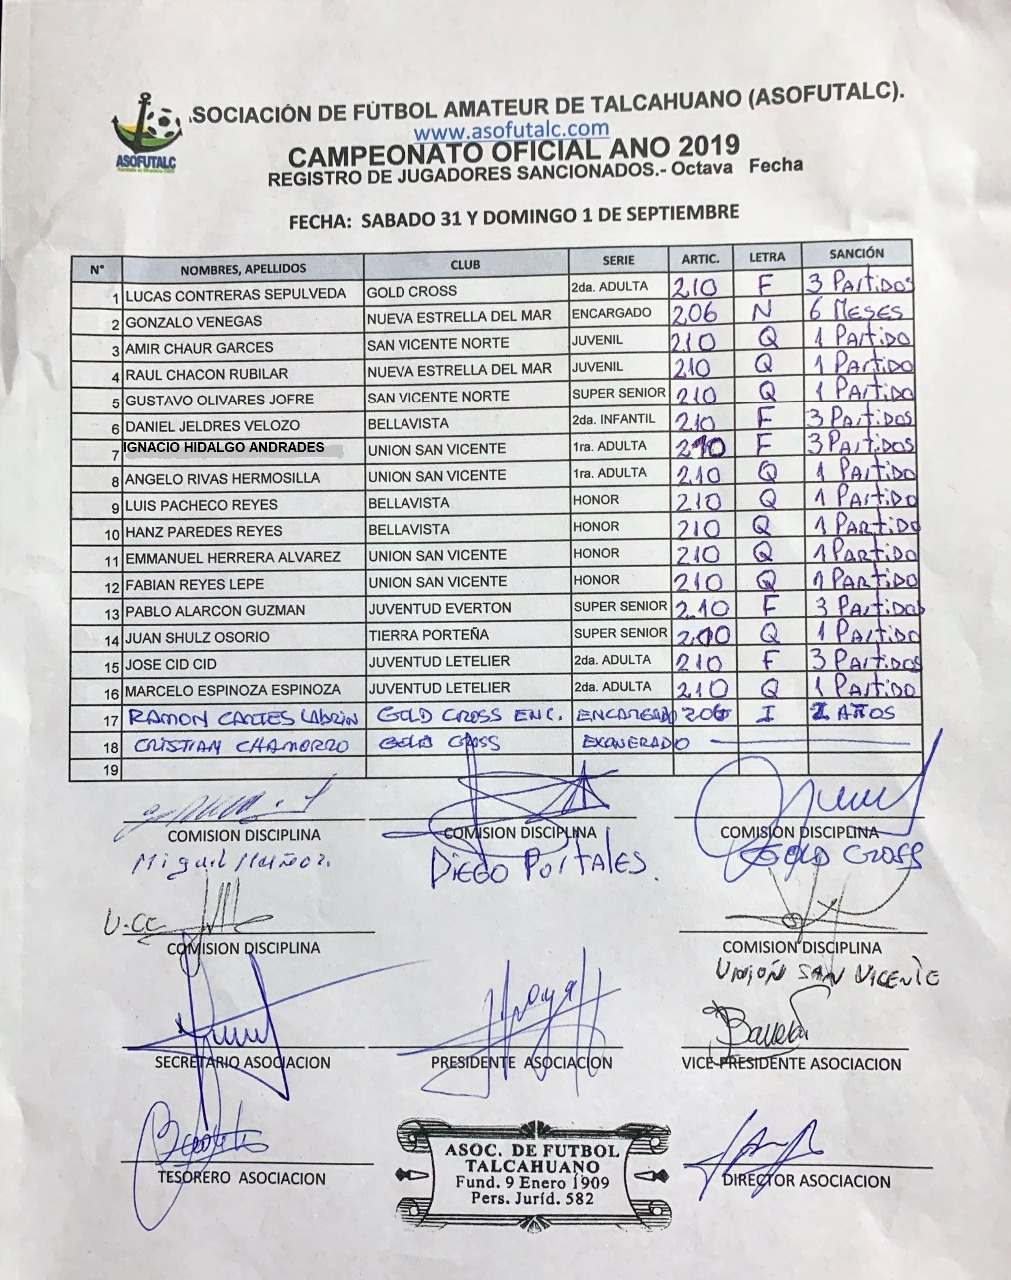 .SOCIACIÓN DE FÚTBOL AMATEUR DE TALCAHUANO (ASOFUTALC).
www.asofutalc.com
ASOFUTALC
CAMPEONATO OFICIAL ANO 2019
REGISTRO DE JUGADORES SANCIONADOS.- Octava Fecha
FECHA: SABADO 31 Y DOMINGO 1 DE SEPTIEMBRE
N° NOMBRES, APELLIDOS CLUB SERIE ARTIC. LETRA SANCIÓN
1 LUCAS CONTRERAS SEPULVEDA GOLD CROSS 2da. ADULTA 210 F 3 PARTIDOS
2 GONZALO VENEGAS NUEVA ESTRELLA DEL MAR ENCARGADO 206 N 6 MESES
3 AMIR CHAUR GARCES SAN VICENTE NORTE JUVENIL 210 Q 1 PARTIDO
4 RAUL CHACON RUBILAR NUEVA ESTRELLA DEL MAR JUVENIL 210 Q 1 PARTIDO
5 GUSTAVO OLIVARES JOFRE SAN VICENTE NORTE SUPER SENIOR 210 Q 1 PARTIDO
6 DANIEL JELDRES VELOZO BELLAVISTA 2da. INFANTIL 210 F 3 PARTIDOS
7 IGNACIO HIDALGO ANDRADES UNION SAN VICENTE 1ra. ADULTA 210 F 3 PARTIDOS
8 ANGELO RIVAS HERMOSILLA UNION SAN VICENTE 1ra. ADULTA 210 Q 1 PARTIDO
9 LUIS PACHECO REYES BELLAVISTA HONOR 210 Q 1 PARTIDO
10 HANZ PAREDES REYES BELLAVISTA HONOR 210 Q 1 PARTIDO
11 EMMANUEL HERRERA ALVAREZ UNION SAN VICENTE HONOR 210 Q 1 PARTIDO
12 FABIAN REYES LEPE UNION SAN VICENTE HONOR 210 Q 1 PARTIDO
13 PABLO ALARCON GUZMAN JUVENTUD EVERTON SUPER SENIOR 210 F 3 PARTIDOS
14 JUAN SHULZ OSORIO TIERRA PORTEÑA SUPER SENIOR 210 Q 1 PARTIDO
15 JOSE CID CID JUVENTUD LETELIER 2da. ADULTA 210 F 3 PARTIDOS
16 MARCELO ESPINOZA ESPINOZA JUVENTUD LETELIER 2da. ADULTA 210 Q 1 PARTIDO
17 RAMON CARTES LABRIN GOLD CROSS ENC. ENCARGADO 206 I 2 AÑOS
18 CRISTIAN CHAMORRO GOLD CROSS EXONERADO
19
COMISION DISCIPLINA COMISION DISCIPLINA COMISION DISCIPLINA
Miguel Muñoz. DIEGO PORTALES. GOLD CROSS
U.CC
COMISION DISCIPLINA COMISION DISCIPLINA
UNIÓN SAN VICENTE
SECRETARIO ASOCIACION PRESIDENTE ASOCIACION VICE-PRESIDENTE ASOCIACION
TESORERO ASOCIACION DIRECTOR ASOCIACION
ASOC. DE FUTBOL
TALCAHUANO
Fund. 9 Enero 1909
Pers. Juríd. 582